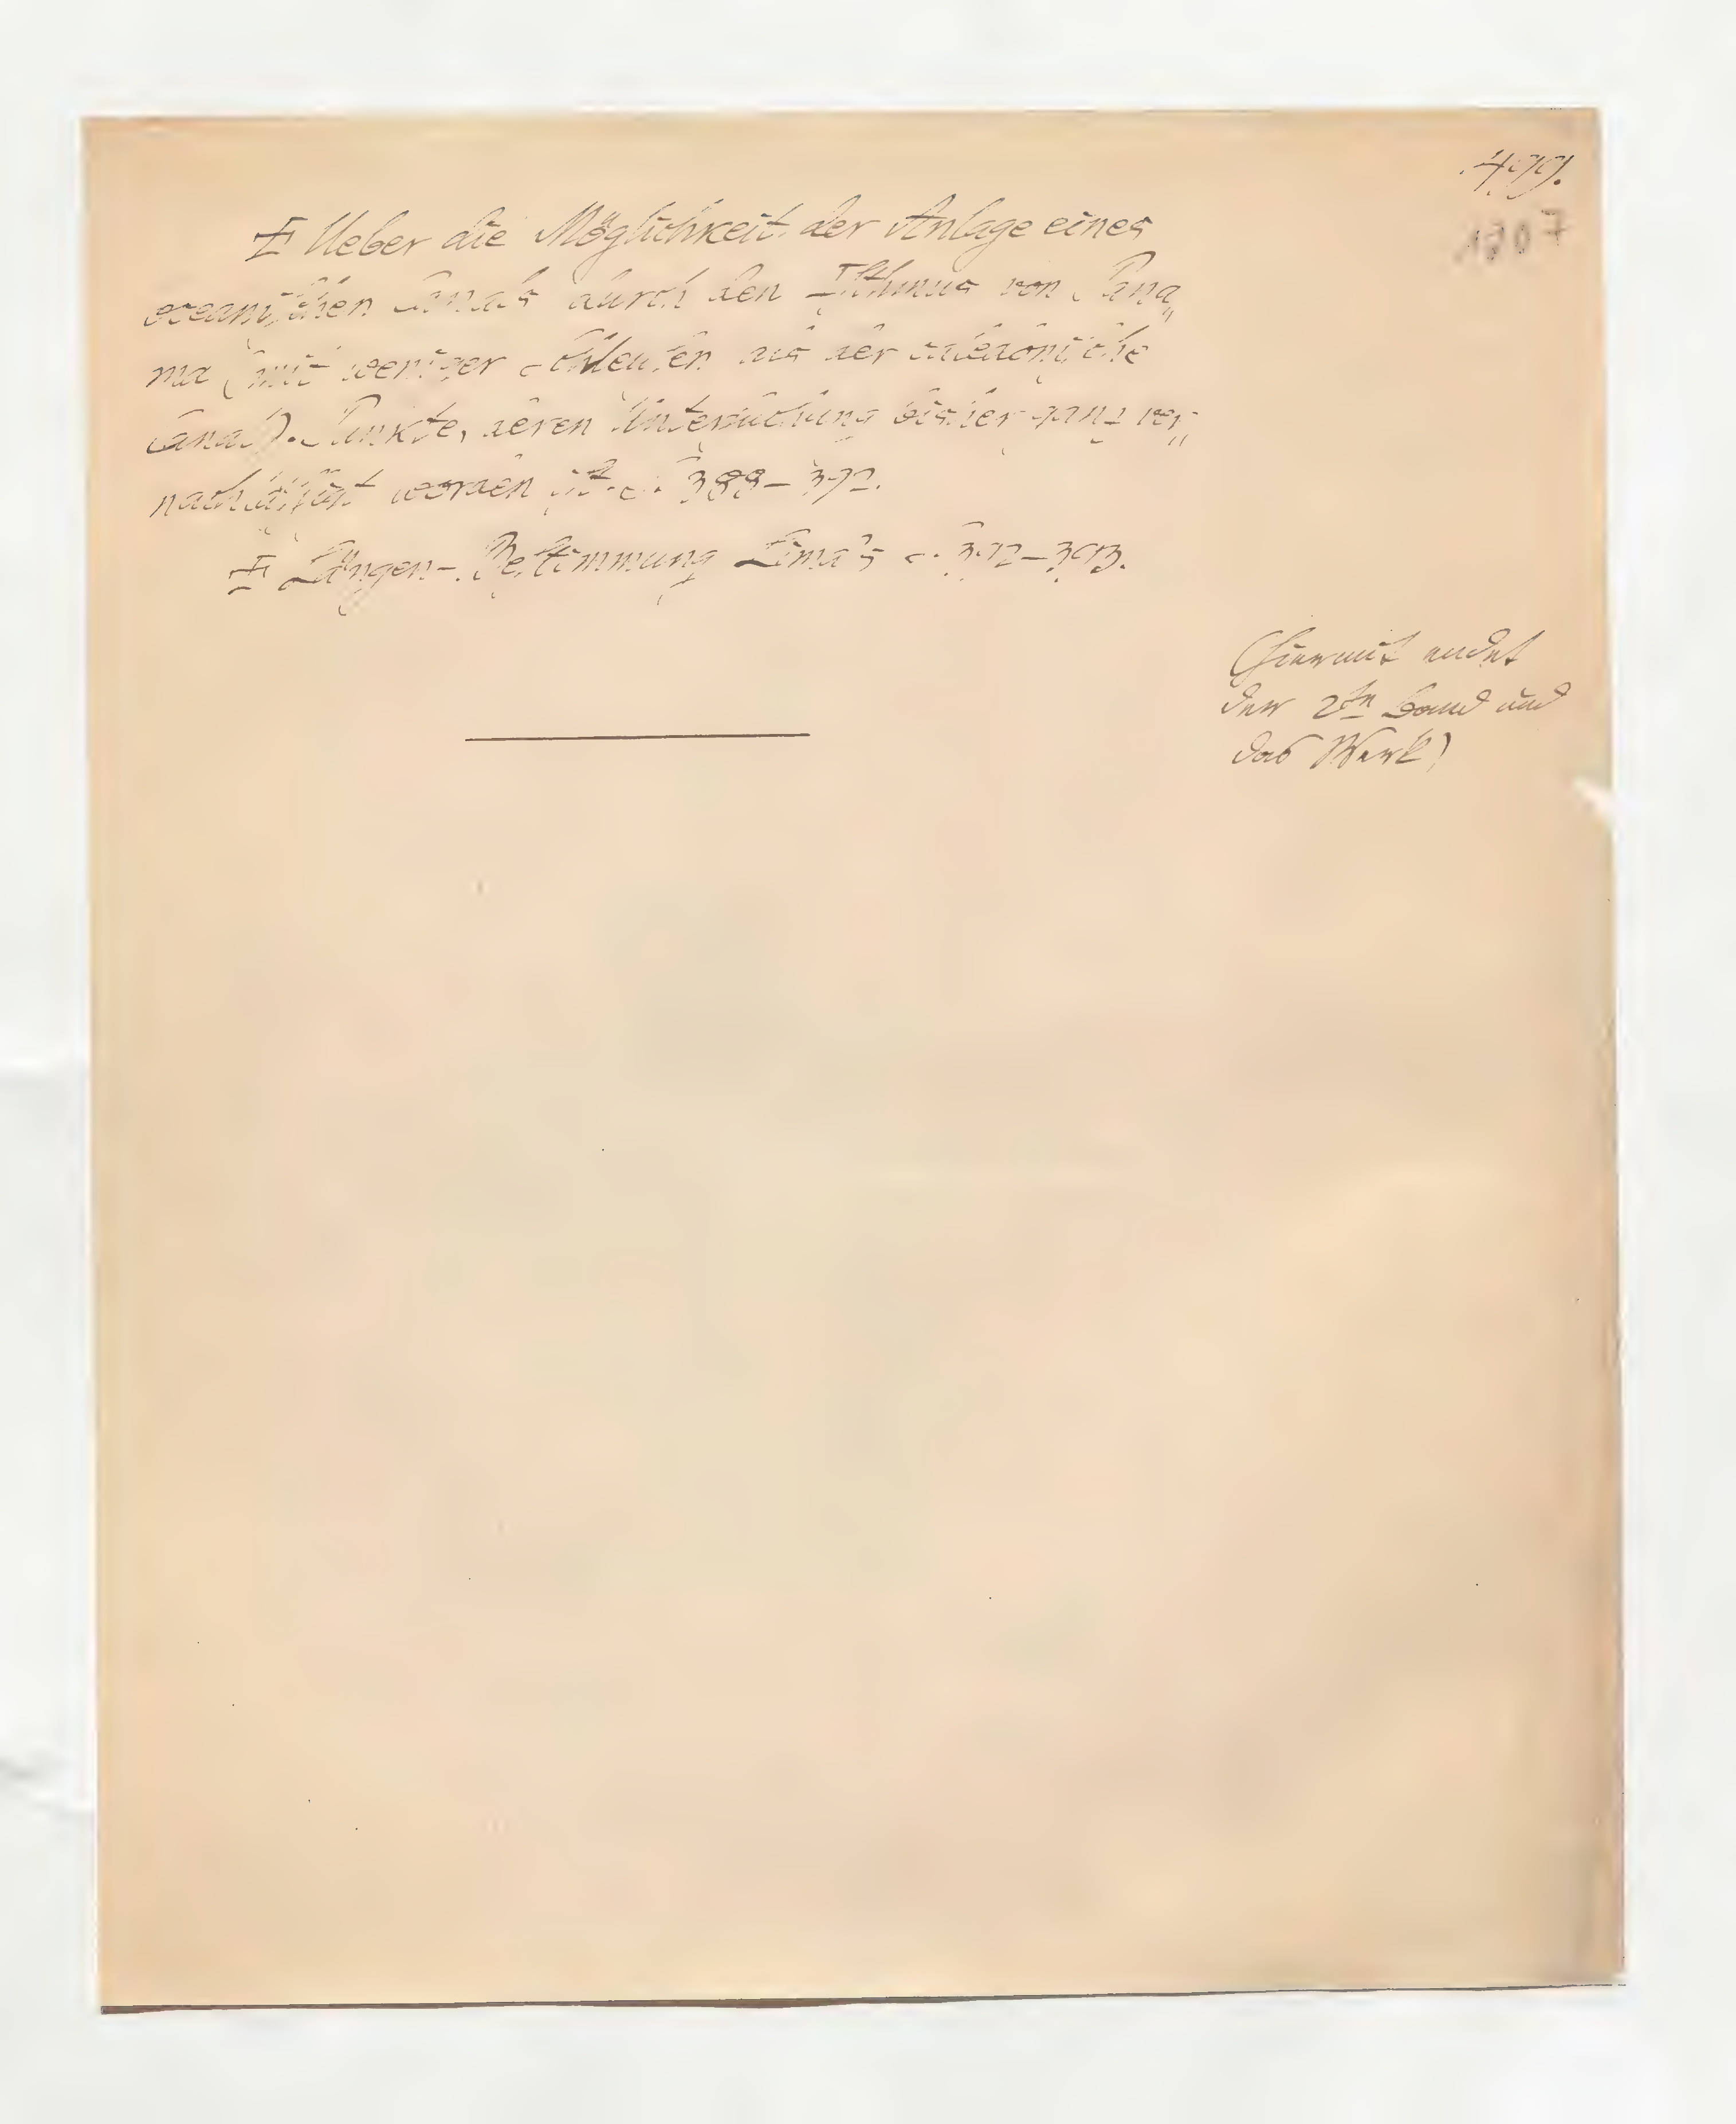 499.
1807
Ɨ Ueber die Möglichkeit der Anlage eines
oceanischen Canals durch den Isthmus von Pana„
ma (mit weniger Schleusen als der caledonische
Canal). Punkte, deren Untersuchung bisher ganz ver„
nachlässigt worden ist S. 388–392.
Ɨ Längen-Bestimmung Lima's S. 392–393.
(Hiermit endet
der 2te Band und
das Werk)